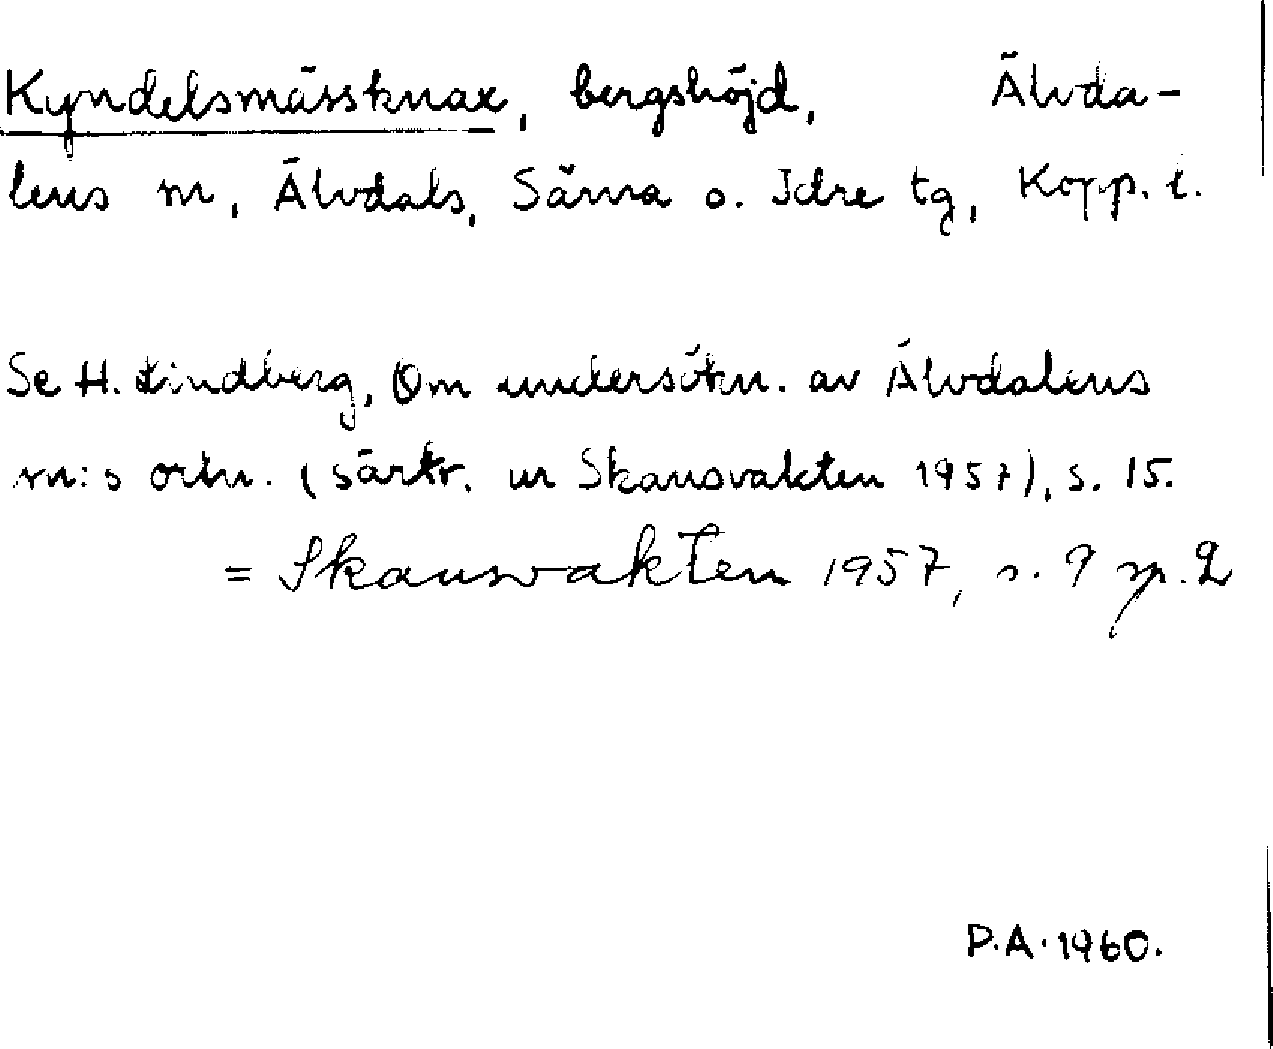 Kyndelsmässknax, bergshöjd, Älvda-
lens sn, Älvdals, Särna o. Idre tg, Kopp. l.
Se H. Lindberg, Om undersökn. av Älvdalens
sn:s ortn. (särtr. ur Skansvakten 1957), s. 15.
= Skansvakten 1957, s. 9 sp. 2
P.A. 1960.